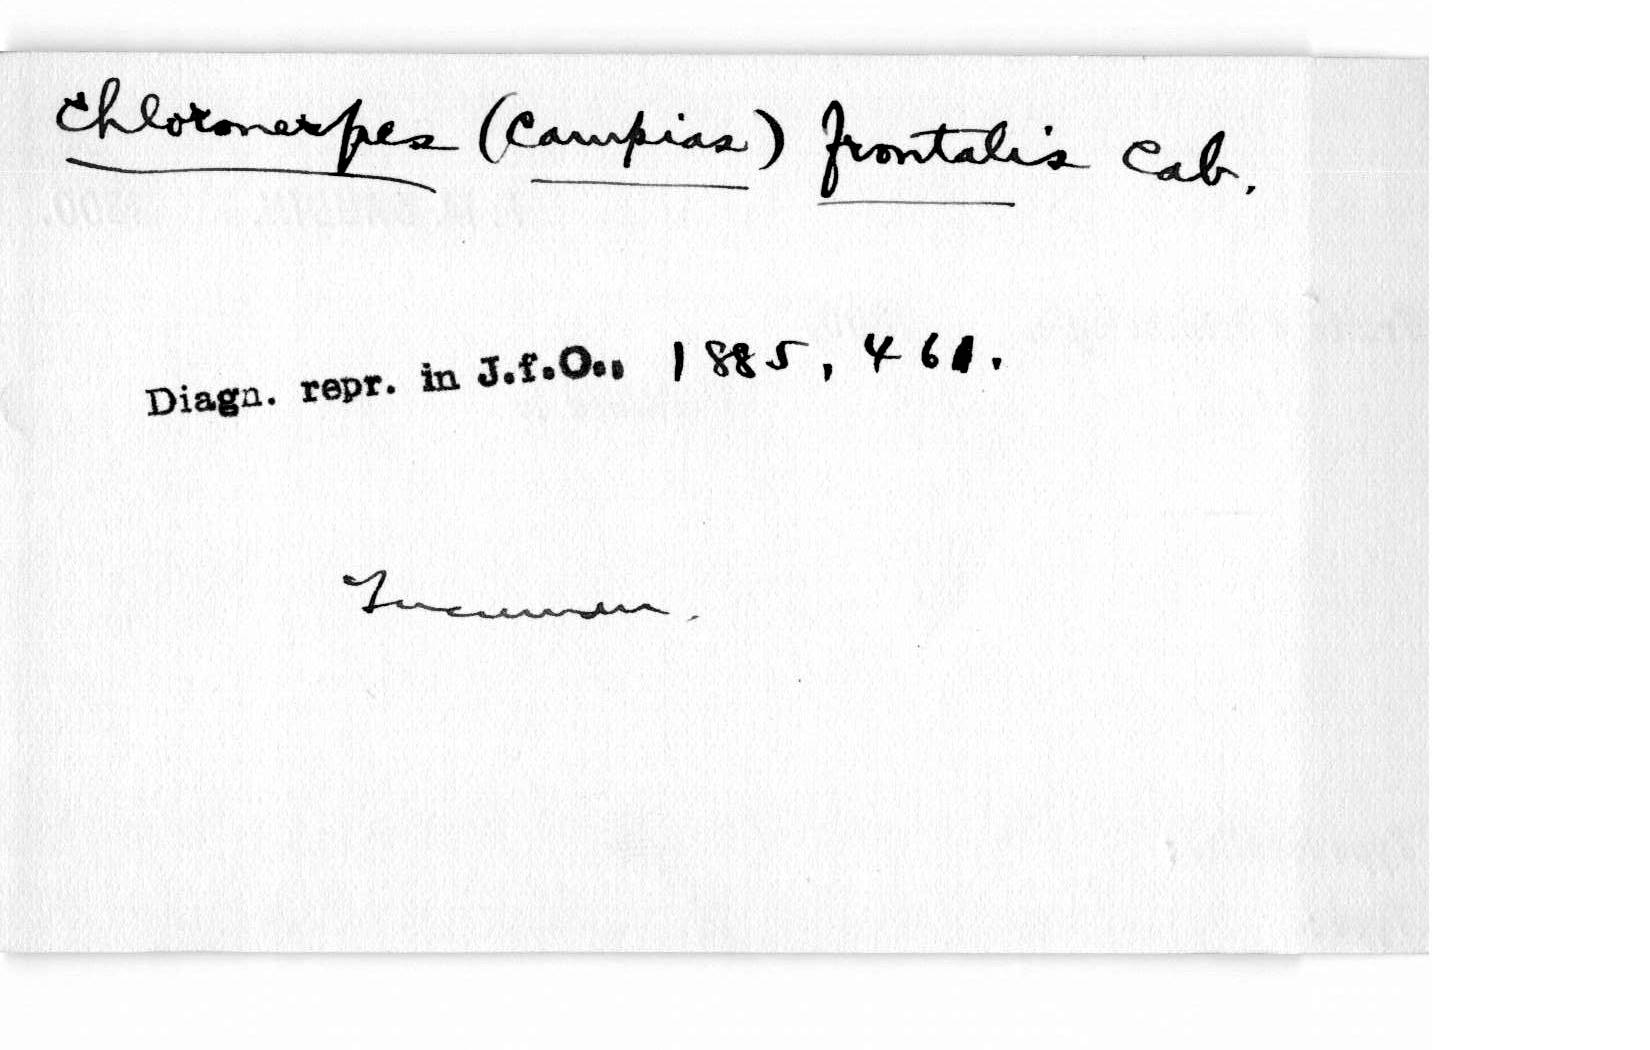 Chloronerpes (Campias) frontalis Cab.
Diagn. repr. in J.f.O., 1885, 461.
Tucuman.